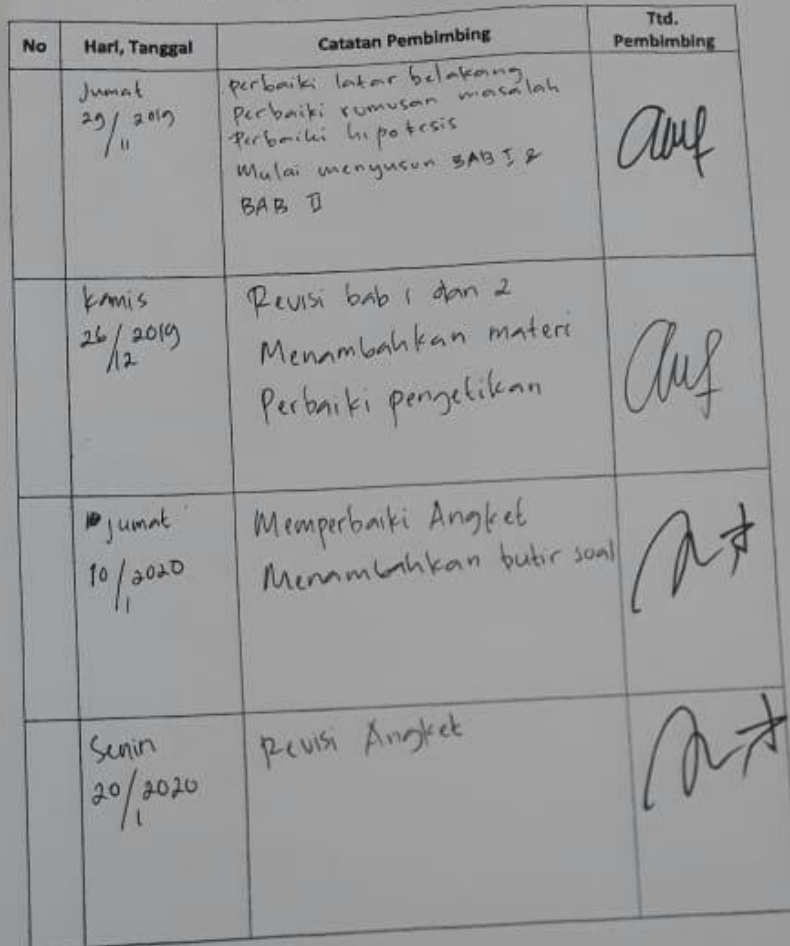 No Hari, Tanggal Catatan Pembimbing Ttd. Pembimbing
Jumat
29/11 2019
perbaiki latar belakang
Perbaiki rumusan masalah
Perbaiki hipotesis
Mulai menyusun BAB I &
BAB II
Kamis
26/12 2019
Revisi bab 1 dan 2
Menambahkan materi
Perbaiki pengetikan
Jumat
10/1 2020
Memperbaiki Angket
Menambahkan butir soal
Senin
20/1 2020
Revisi Angket